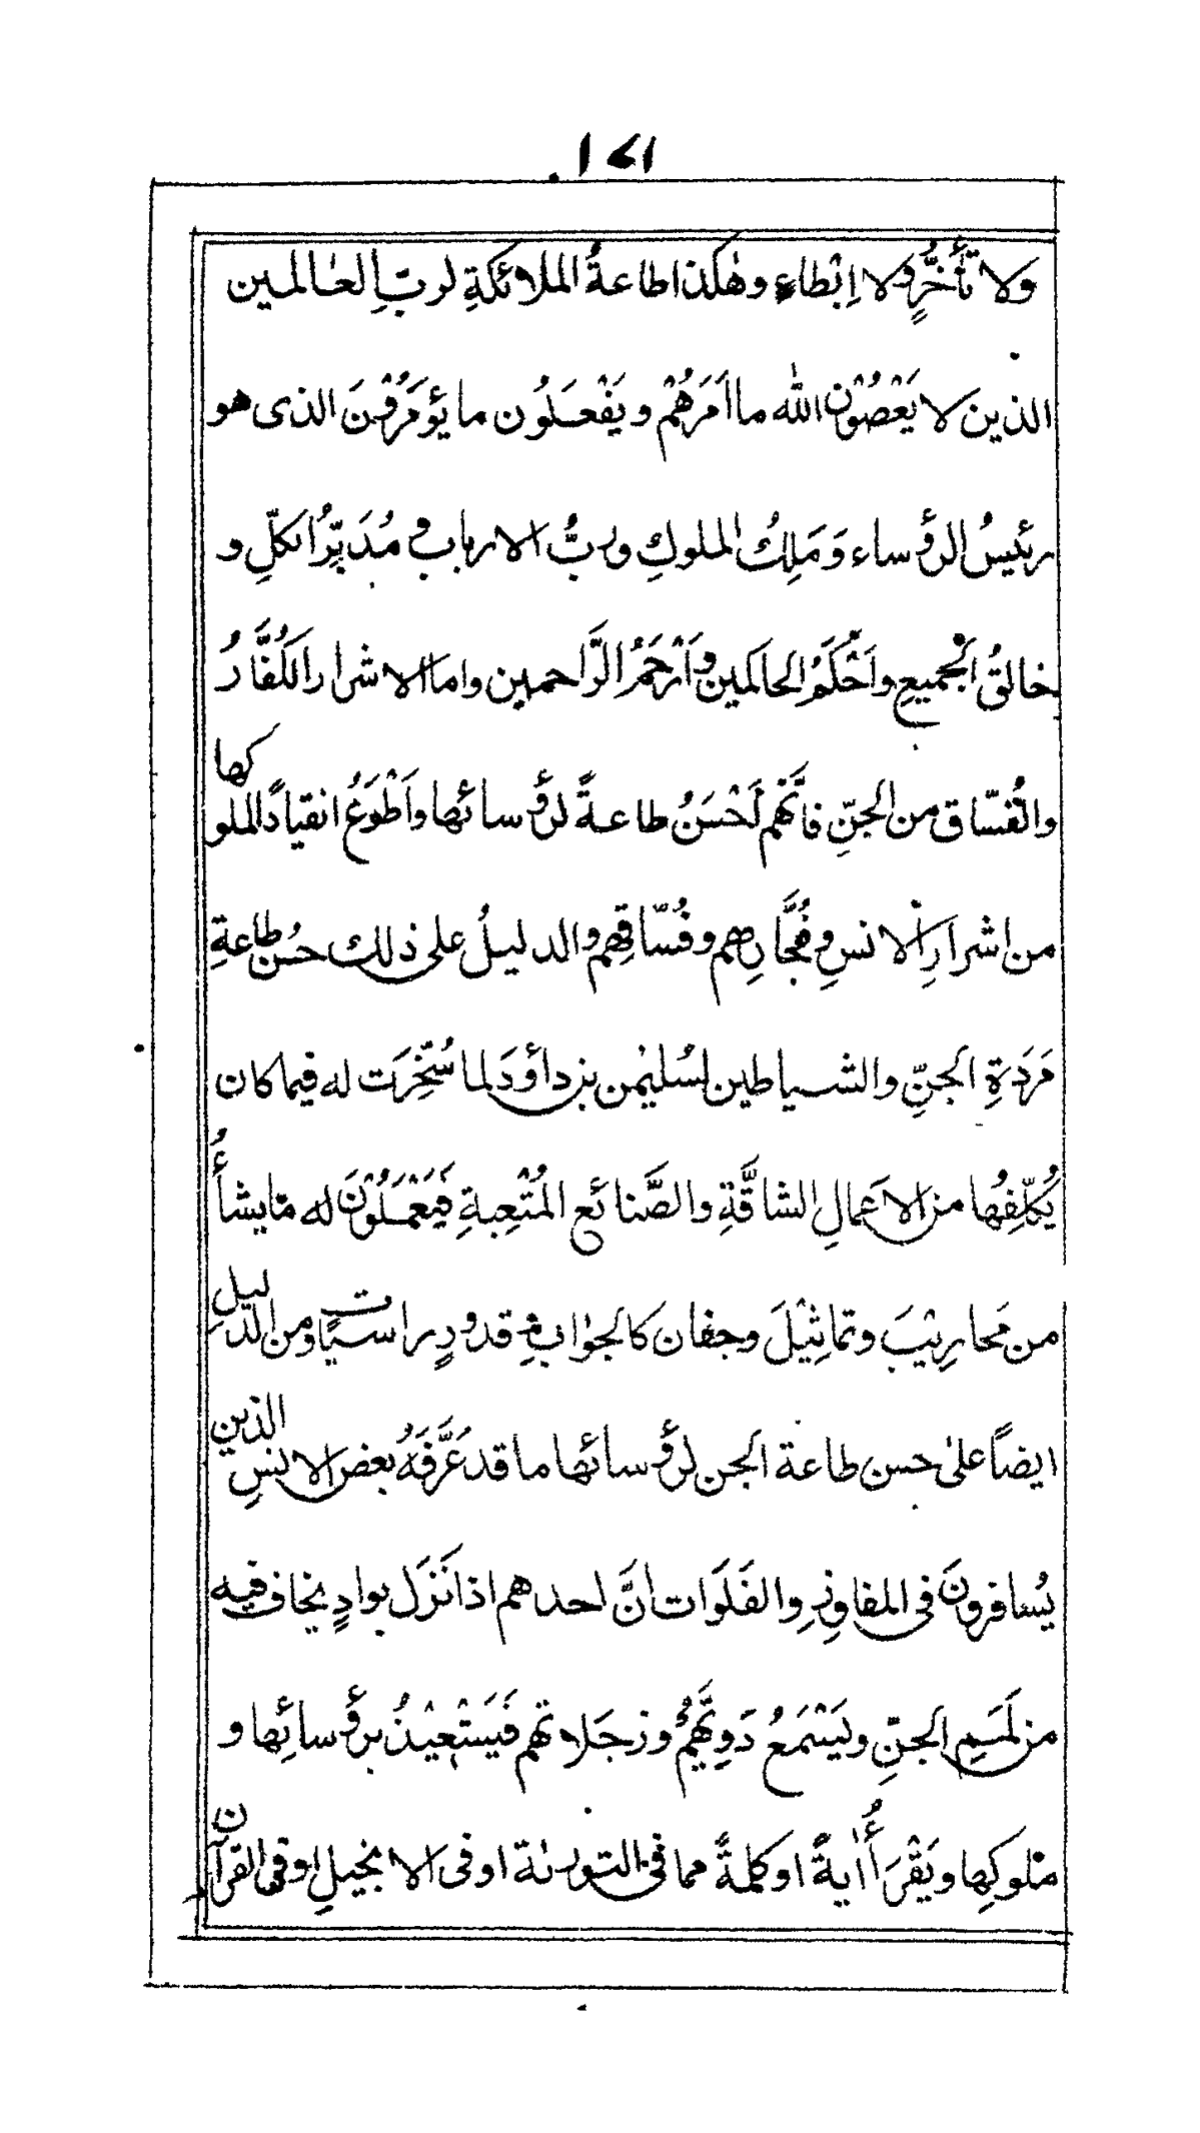 ١٧١
ولا تأَخُّرٍ ولا اِبْطاءٍ وهٰكذا طاعةُ الملائكةِ لربِّ العٰالمين
الذين لا يَعْصُوْن اللّٰه ما اَمَرَهُمْ ويَفْعَلُون ما يُؤمَرُوْنَ الذى هو
رئيسُ الرؤساء وَمَلِكُ الملوكِ وربُّ الارباب ومُدَبِّرُ الكلِّ و
خالقُ الجميعِ واَحْكَمُ الحاكمين واَرْحَمُ الرَّاحمين واما الاشرار الكُفَّارُ
والفُسّاق من الجنِّ فانَّهُم لَحْسَنُ طاعةً لرؤسائها واَطْوَعُ انقيادًا لملوكها
من اشرارِ الانسِ وفُجَّارِهم وفُسّاقِهم والدليلُ على ذلك حُسْن طاعةِ
مَرَدَةِ الجنِّ والشياطين لسُليٰمن بن داؤدَ لما سُخِّرَت له فيما كان
يُكلِّفُها من الاعمالِ الشاقَّةِ والصَّنائع المُتْعِبةِ فَيَعْمَلُوْنَ له مايشأُ
من مَحارِيْبَ وتماثِيْلَ وجفان كالجوابِ وقدورٍ راسياتٍ ومن الدليلِ
ايضاً على حسن طاعة الجن لرؤسائها ما قد عَرَّفَهُ بعض الانسِ الذين
يُسافرونَ فى المفاوزِ والفَلَوَات انَّ احدهم اذا نَزَل بوادٍ يخاف فيه
من لَمَمِ الجنِّ ويَسْمَعُ دَوِيَّهُم وزجَلاتهم فَيَسْتَعِيْذُ برؤسائِها و
ملوكِها ويَقْرَأُ اٰيةً او كلمةً مما فى التورىٰة او فى الانجيلِ او فى القرآن